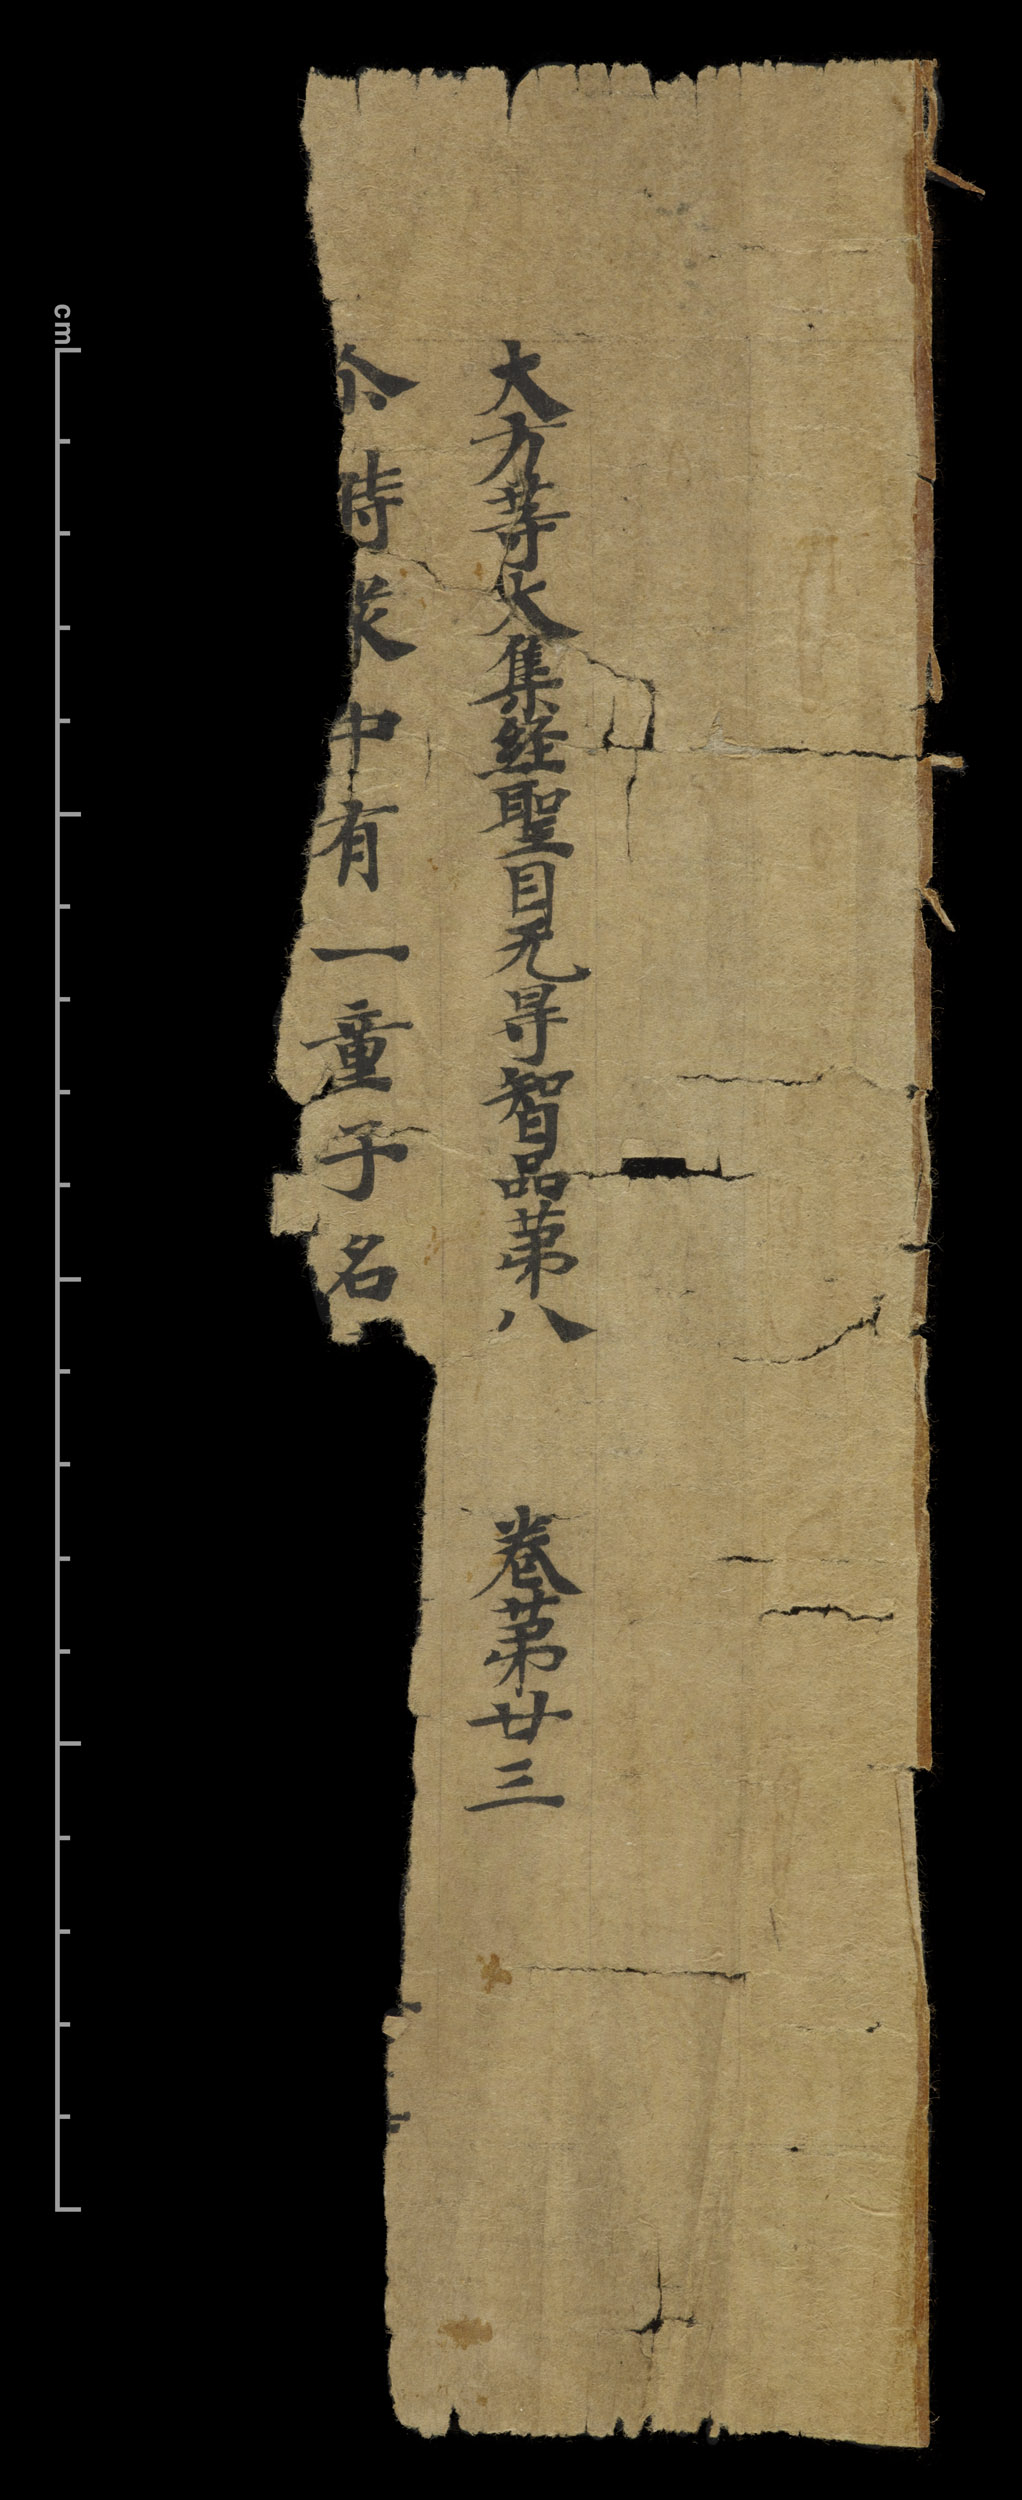 大方等大集経聖目无㝵智品苐八 卷苐廿三
尒時衆中有一童子名
cm